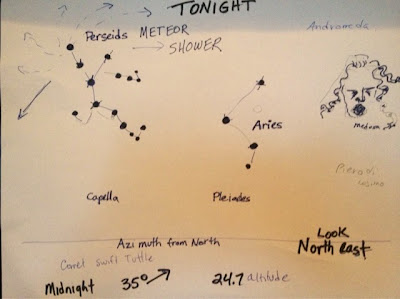 TONIGHT
Perseids METEOR
SHOWER
Andromeda
Aries
medusa
Capella
Pleiades
Look
North east
Azimuth from North
Comet Swift Tuttle
Midnight 35° 24.7 altitude